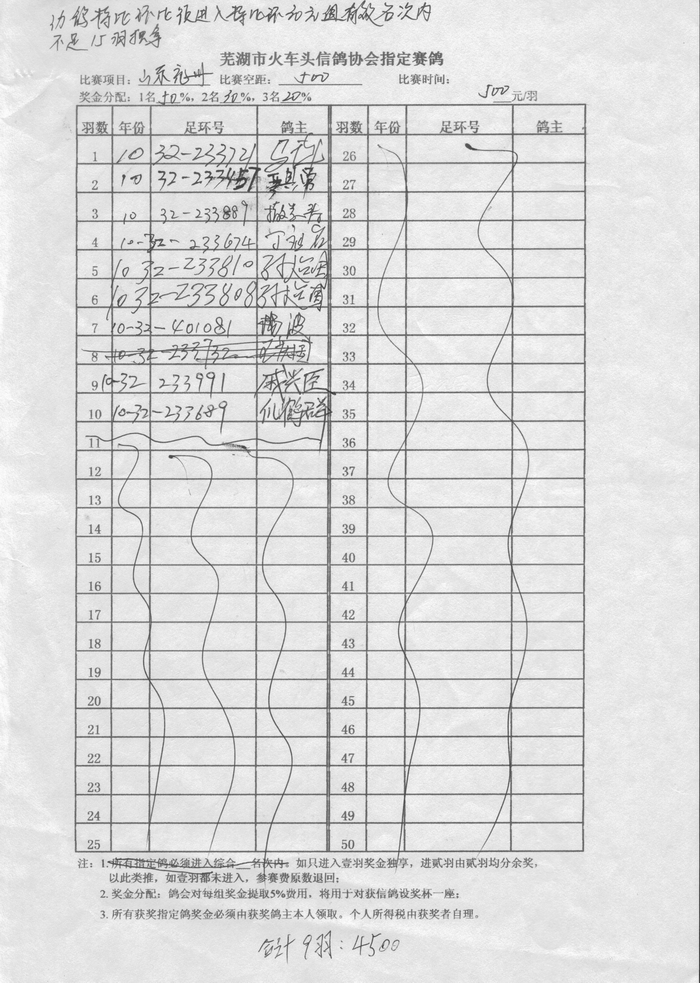 不足15羽独拿
芜湖市火车头信鸽协会指定赛鸽
比赛项目：山东 比赛空距：500 比赛时间：
奖金分配：1名50%，2名30%，3名20% 500元/羽
羽数 年份 足环号 鸽主 羽数 年份 足环号 鸽主
1 10 32-233721 26
2 10 32-233457 27
3 10 32-233889 28
4 10-32-233674 29
5 10 32-233810 30
6 10 32-233808 31
7 10-32-401081 杨波 32
8 10-32-233732 33
9 10-32 233991 戚兴臣 34
10 10-32-233689 仇鹤群 35
11 36
12 37
13 38
14 39
15 40
16 41
17 42
18 43
19 44
20 45
21 46
22 47
23 48
24 49
25 50
注：1.所有指定鸽必须进入综合__名次内。如只进入壹羽奖金独享，进贰羽由贰羽均分余奖，
以此类推，如壹羽都未进入，参赛费原数退回；
2. 奖金分配：鸽会对每组奖金提取5%费用，将用于对获信鸽设奖杯一座；
3. 所有获奖指定鸽奖金必须由获奖鸽主本人领取。个人所得税由获奖者自理。
合计9羽：4500